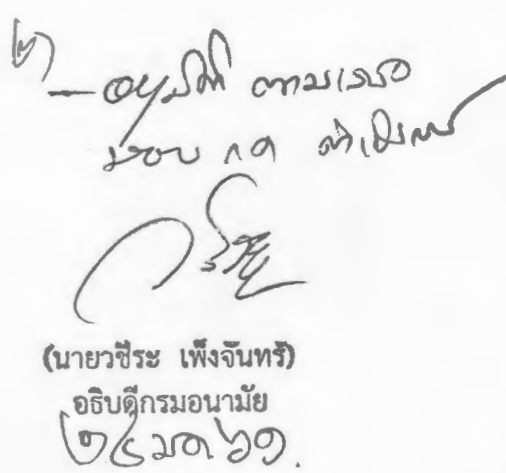 ๒)
- อนุมัติ ตามเสนอ
มอบ กค ดำเนินการ
(นายวชีระ เพ็งจันทร์)
อธิบดีกรมอนามัย
๒๔ มค ๖๑.